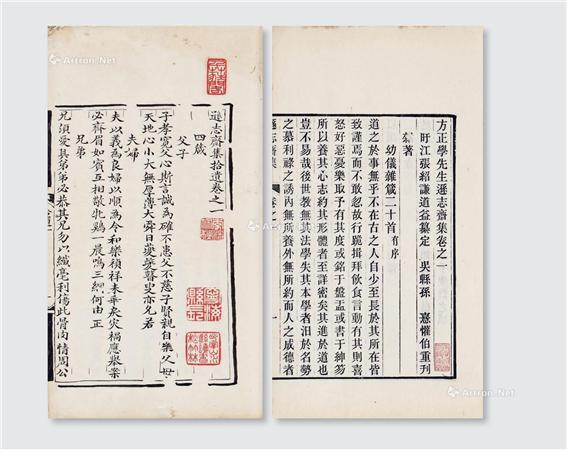 方正學先生遜志齋集卷之一
盱江張紹謙道益纂定 吳縣孫憙懽伯重刊
雜著
幼儀雜箴二十首 有序
道之於事無乎不在古之人自少至長於其所在皆
致謹焉而不敢忽故行跪揖拜飲食言動有其則喜
怒好惡憂樂取予有其度或銘于盤盂或書于紳笏
所以養其心志約其形體者至詳密矣其進於道也
豈不易哉後世教無其法學失其本學者汨於名勢
之慕利祿之誘內無所養外無所約而人之成德者
遜志齋集 卷之一
遜志齋集拾遺卷之一
四箴
父子
子孝寬父心斯言誠為確不患父不慈子賢親自樂父母
天地心小大無厚薄大舜日夔夔瞽叟亦允若
夫婦
夫以義為良婦以順為令和樂禎祥來乖戾災禍應舉案
必齊眉如賓互相敬牝鷄一晨鳴三綱何由正
兄弟
兄須愛其弟弟必恭其兄勿以纖毫利傷此骨肉情周公
Artron.Net
Artron.Net
Artron.Net
Artron.Net